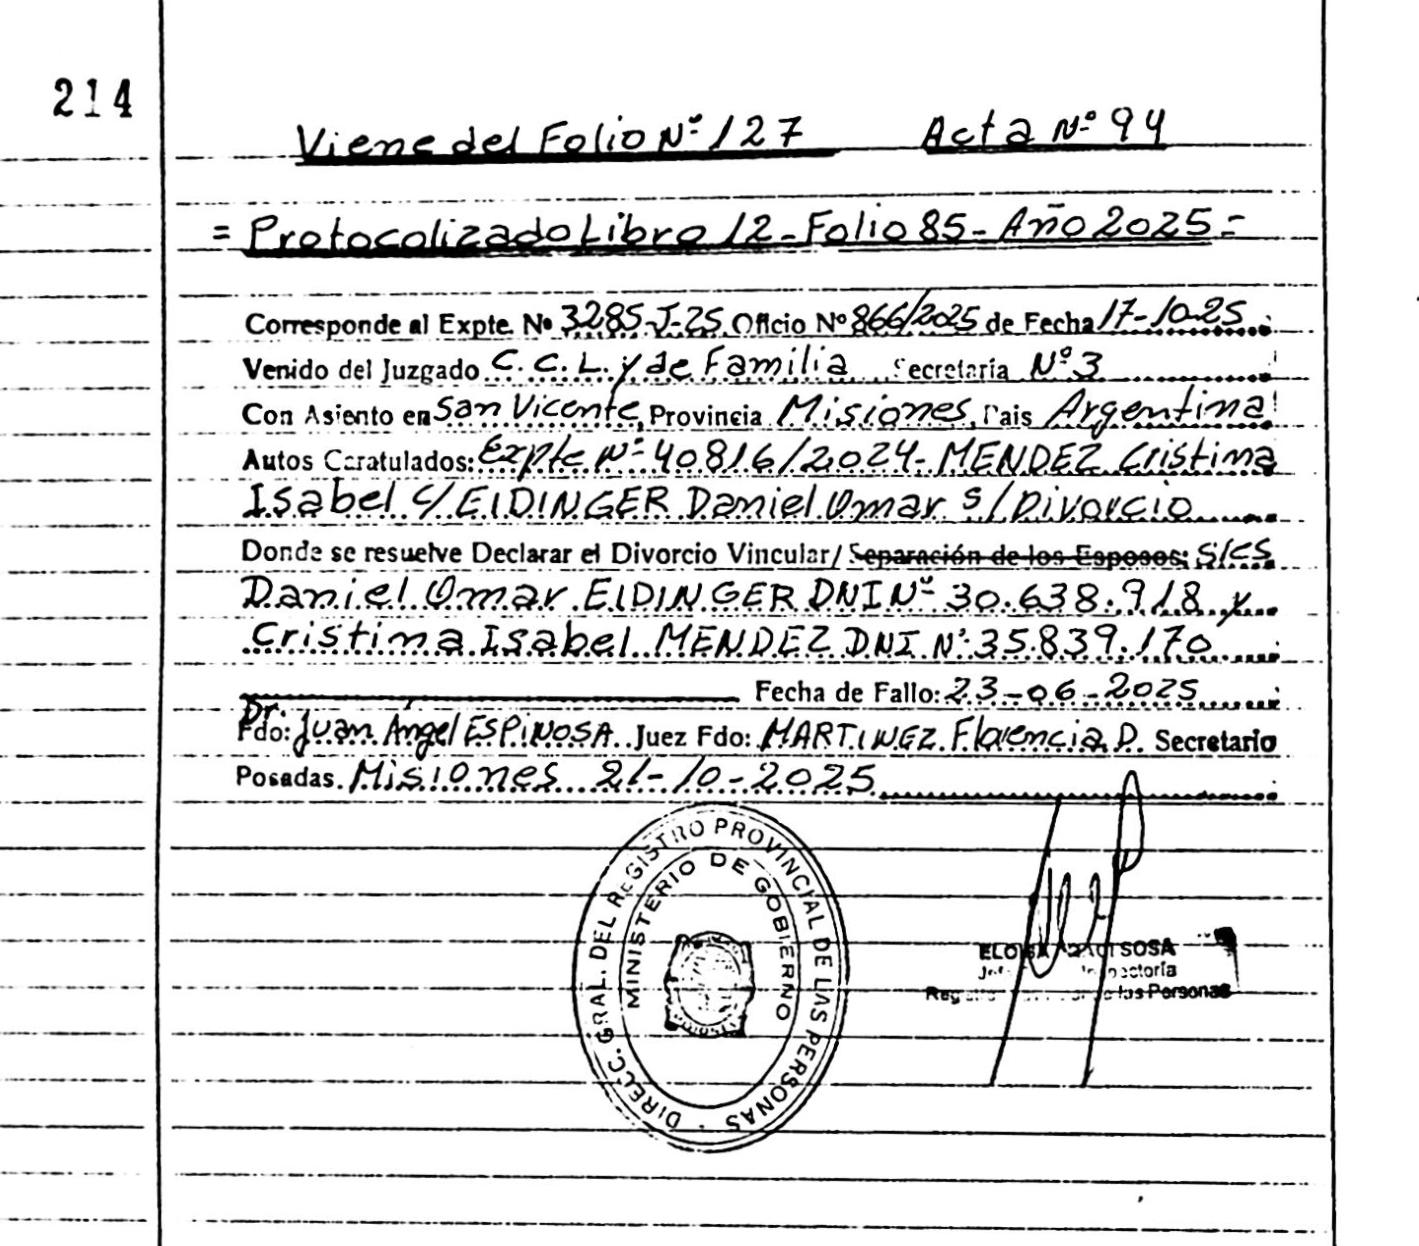 214
Viene del Folio Nº 127 Acta Nº 94
= Protocolizado Libro 12 - Folio 85 - Año 2025 =
Corresponde al Expte. Nº 3285-J-25 Oficio Nº 866/2025 de Fecha 17-10-25
Venido del Juzgado C. C. L. y de Familia Secretaría Nº 3
Con Asiento en San Vicente, Provincia Misiones, Pais Argentina
Autos Caratulados: Expte Nº 40816/2024 - MENDEZ Cristina
Isabel c/ EIDINGER Daniel Omar s/ Divorcio
Donde se resuelve Declarar el Divorcio Vincular/ Separación de los Esposos:
Daniel Omar EIDINGER DNI Nº 30.638.918 y
Cristina Isabel MENDEZ DNI Nº 35.839.170
Fecha de Fallo: 23-06-2025
Fdo: Dr. Juan Angel ESPINOSA Juez Fdo: MARTINEZ Florencia D. Secretario
Posadas. Misiones 21-10-2025
DIRECC. GRAL. DEL REGISTRO PROVINCIAL DE LAS PERSONAS
MINISTERIO DE GOBIERNO
SOSA
de las Personas